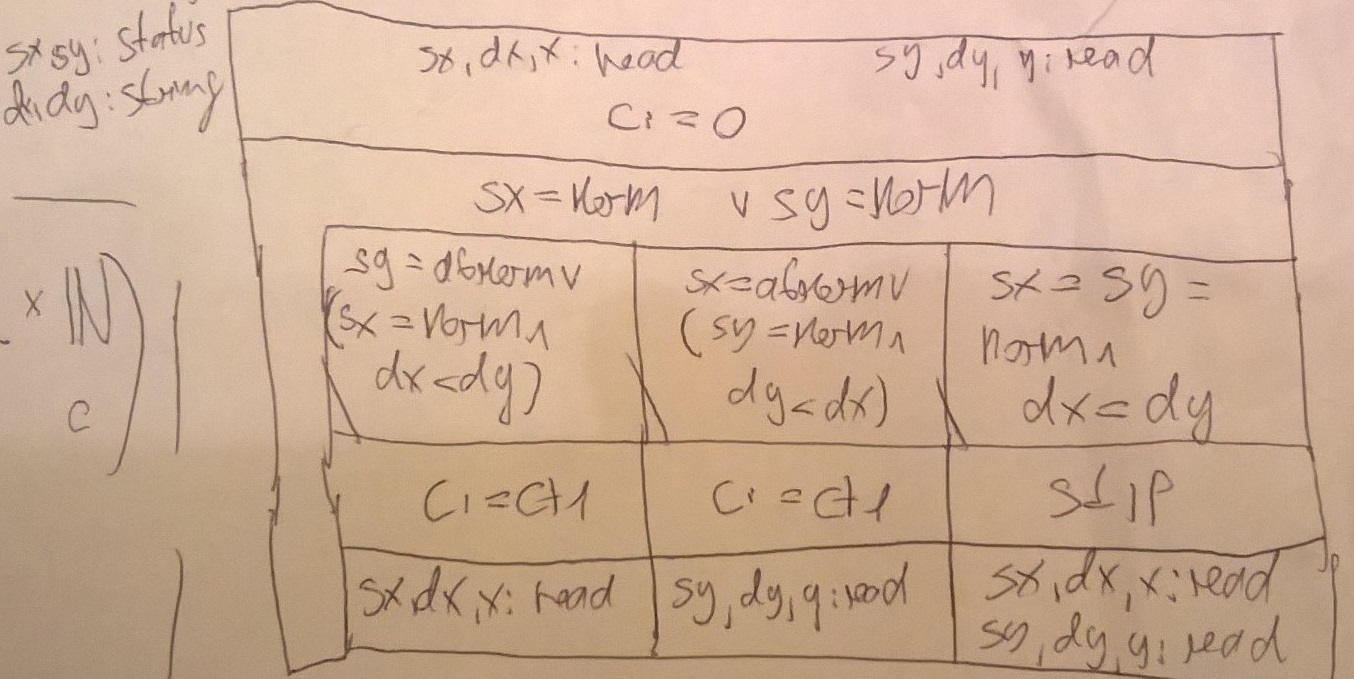 sx sy: status
dx, dy: string
sx, dx, x: read sy, dy, y: read
C:=0
sx=norm ∨ sy=norm
sy=abnorm ∨
(sx=norm ∧
dx<dy)
sx=abnorm ∨
(sy=norm ∧
dy<dx)
sx=sy=
norm ∧
dx=dy
C:=C+1
C:=C+1
SKIP
sx,dx,x: read
sy,dy,y: read
sx,dx,x: read
sy,dy,y: read
x ℕ)
C